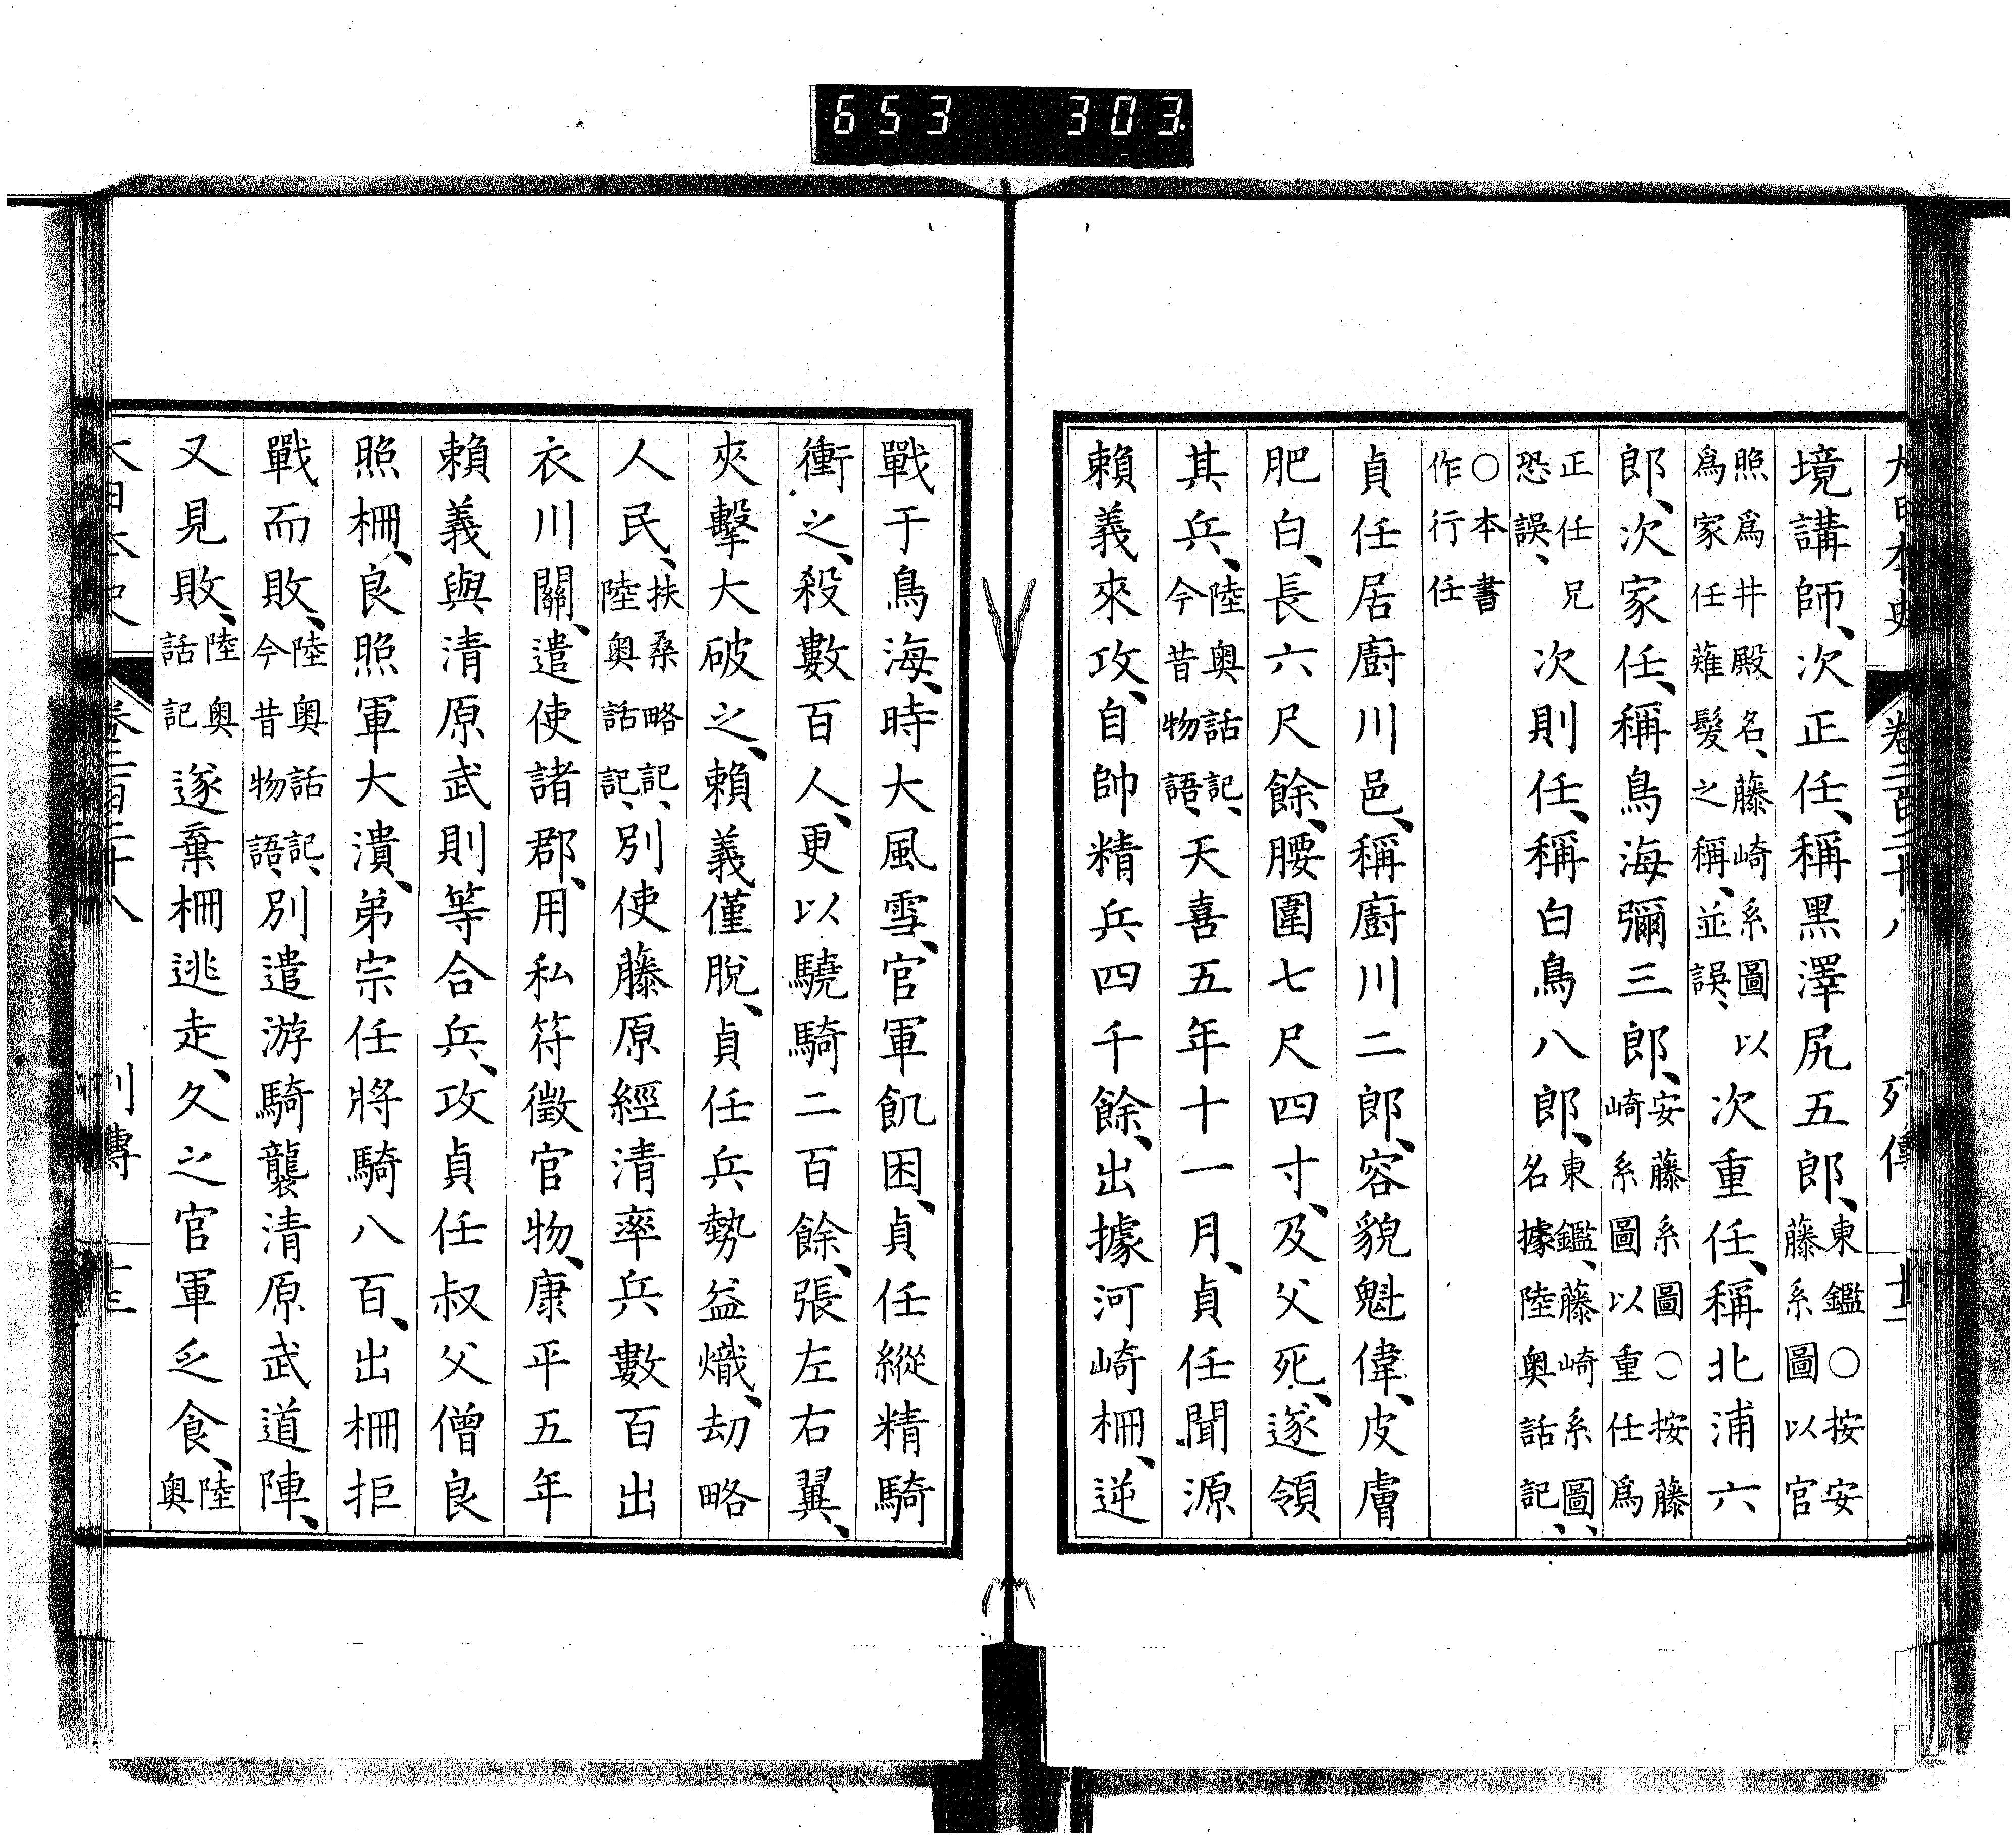 大日本史 卷二百二十八 列傳
境講師、次正任、稱黑澤尻五郎、東鑑○按安藤系圖以官
照爲井殿名、藤崎系圖以爲家任薙髮之稱、並誤、次重任、稱北浦六
郎、次家任、稱鳥海彌三郎、安藤系圖○按藤崎系圖以重任爲
正任兄恐誤、次則任、稱白鳥八郎、東鑑、藤崎系圖、名據陸奥話記、
○本書作行任
貞任居廚川邑、稱廚川二郎、容貌魁偉、皮膚
肥白、長六尺餘、腰圍七尺四寸、及父死、遂領
其兵、陸奥話記、今昔物語、天喜五年十一月、貞任聞源
賴義來攻、自帥精兵四千餘、出據河崎柵、逆
戰于鳥海、時大風雪、官軍飢困、貞任縱精騎
衝之、殺數百人、更以驍騎二百餘、張左右翼、
夾擊大破之、賴義僅脫、貞任兵勢益熾、劫略
人民、扶桑略記、陸奥話記、別使藤原經清率兵數百出
衣川關、遣使諸郡、用私符徵官物、康平五年
賴義與清原武則等合兵、攻貞任叔父僧良
照柵、良照軍大潰、弟宗任將騎八百、出柵拒
戰而敗、陸奥話記、今昔物語、別遣游騎襲清原武道陣、
又見敗、陸奥話記遂棄柵逃走、久之官軍乏食、陸奥
大日本史 卷二百二十八 列傳
653 303